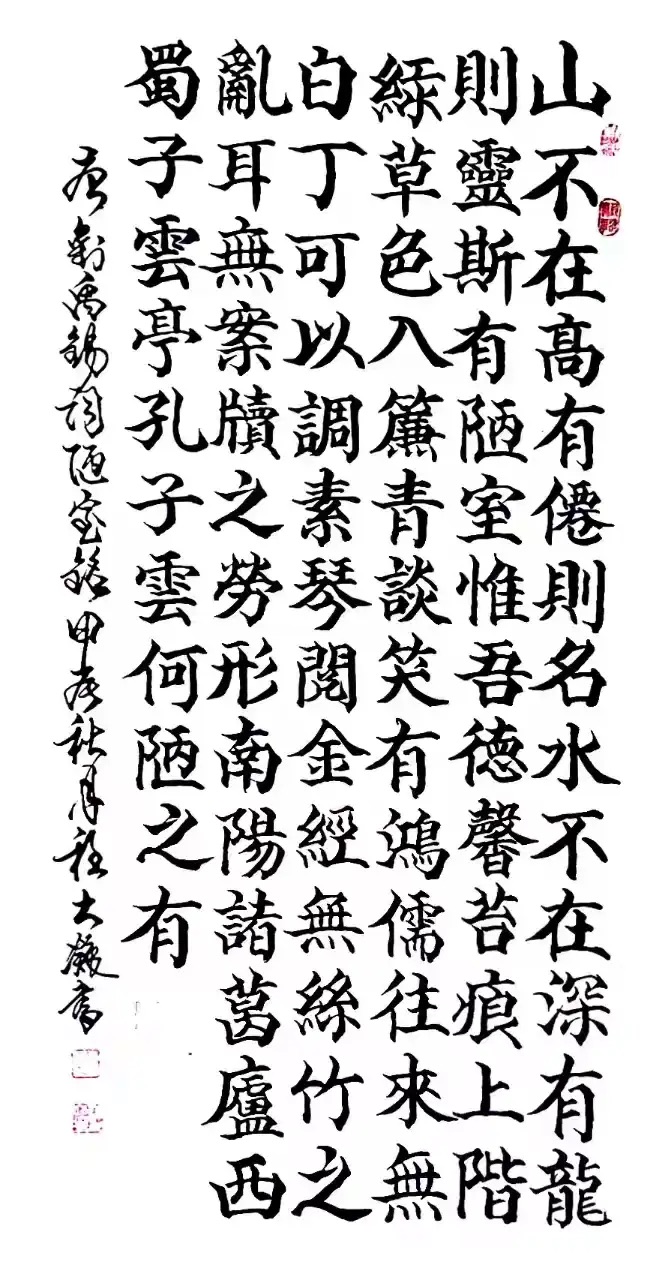 山不在髙有僊則名水不在深有龍
則靈斯有陋室惟吾德馨苔痕上階
綠草色入簾青談笑有鴻儒往來無
白丁可以調素琴閱金經無絲竹之
亂耳無案牘之勞形南陽諸葛廬西
蜀子雲亭孔子雲何陋之有
唐劉禹錫詞陋室銘甲辰秋月程大書